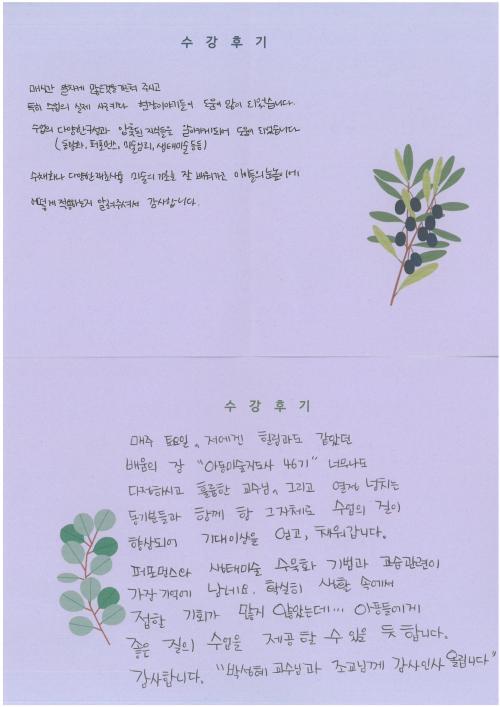 수강후기
매시간 알차게 많은것을 전해 주시고
특히 수업의 실제 사례와 현장이야기들이 도움이 많이 되었습니다.
수업의 다양한구성과 함축된 지식들을 알아가게되어 도움이 되었습니다
(동화화, 퍼포먼스, 미술심리, 생태미술 등등)
수채화나 다양한 재료사용 미술의 기초를 잘 배워가고 아이들의 눈높이에
어떻게 적용하는지 알려주셔서 감사합니다.
수강후기
매주 토요일, 저에겐 힐링과도 같았던
배움의 장 "아동미술지도사 46기" 너무나도
다정하시고 훌륭한 교수님, 그리고 열정 넘치는
동기분들과 함께 함 그자체로 수업의 질이
향상되어 기대이상을 얻고, 채워갑니다.
퍼포먼스와 생태미술 수묵화 기법과 교습관련이
가장 기억에 남네요. 확실히 생활 속에서
접할 기회가 많지 않았는데... 아동들에게
좋은 질의 수업을 제공 할 수 있을 듯 합니다.
감사합니다. "박성혜 교수님과 조교님께 감사인사 올립니다"